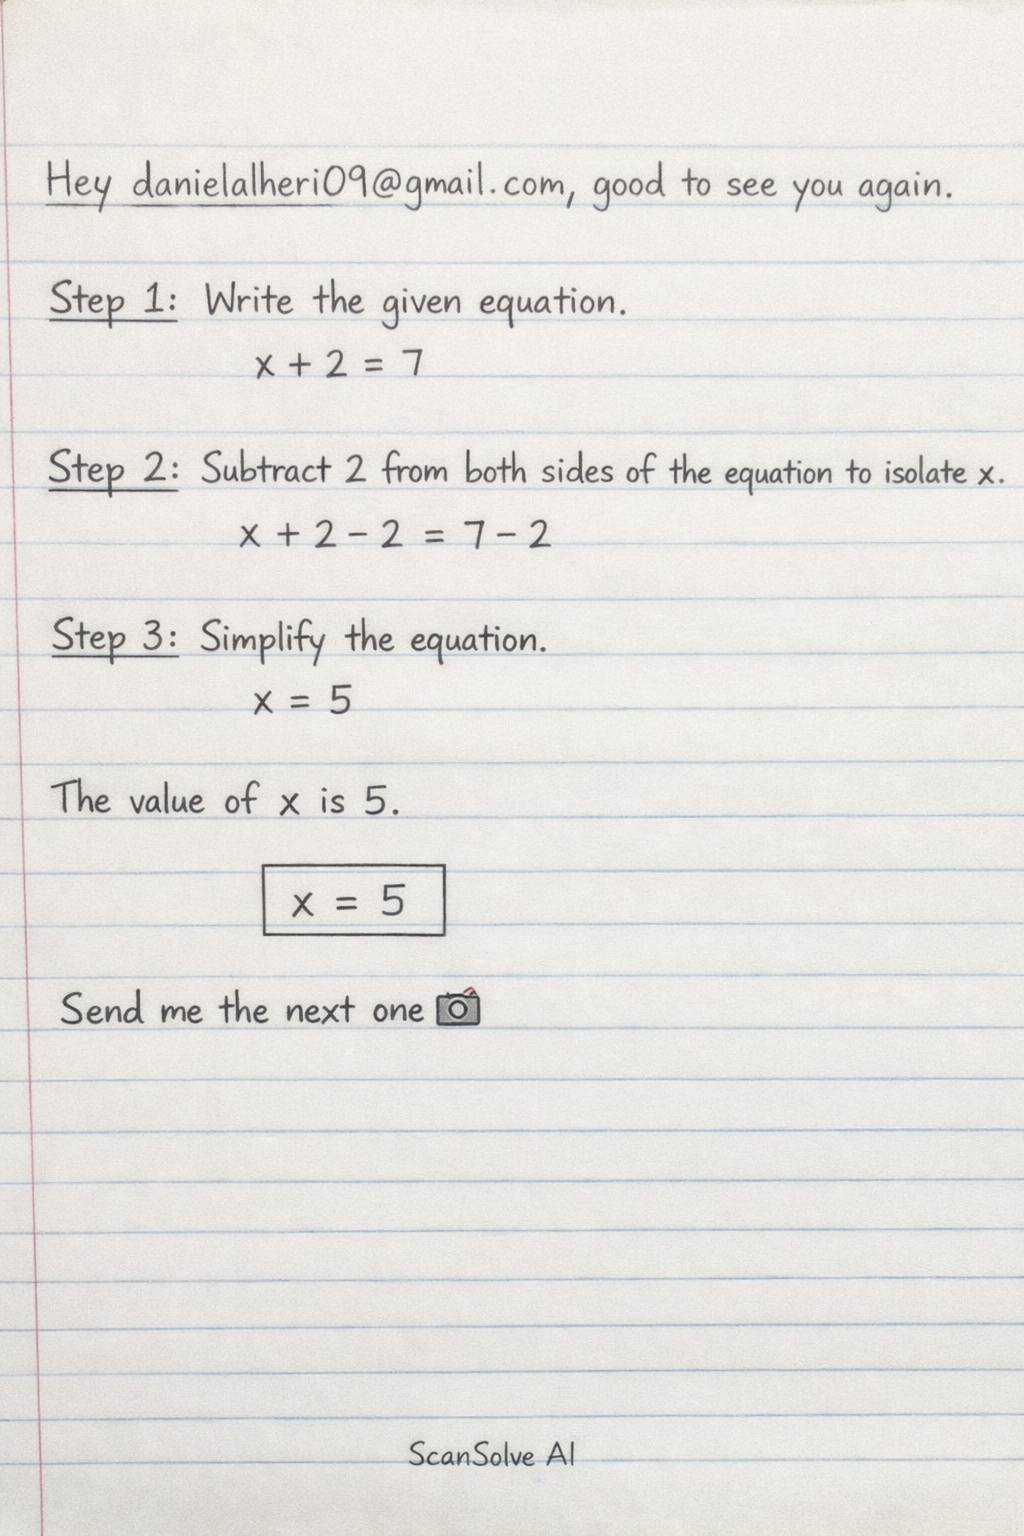 Hey danielalheri09@gmail.com, good to see you again.
Step 1: Write the given equation.
x + 2 = 7
Step 2: Subtract 2 from both sides of the equation to isolate x.
x + 2 - 2 = 7 - 2
Step 3: Simplify the equation.
x = 5
The value of x is 5.
x = 5
Send me the next one 📷
ScanSolve AI